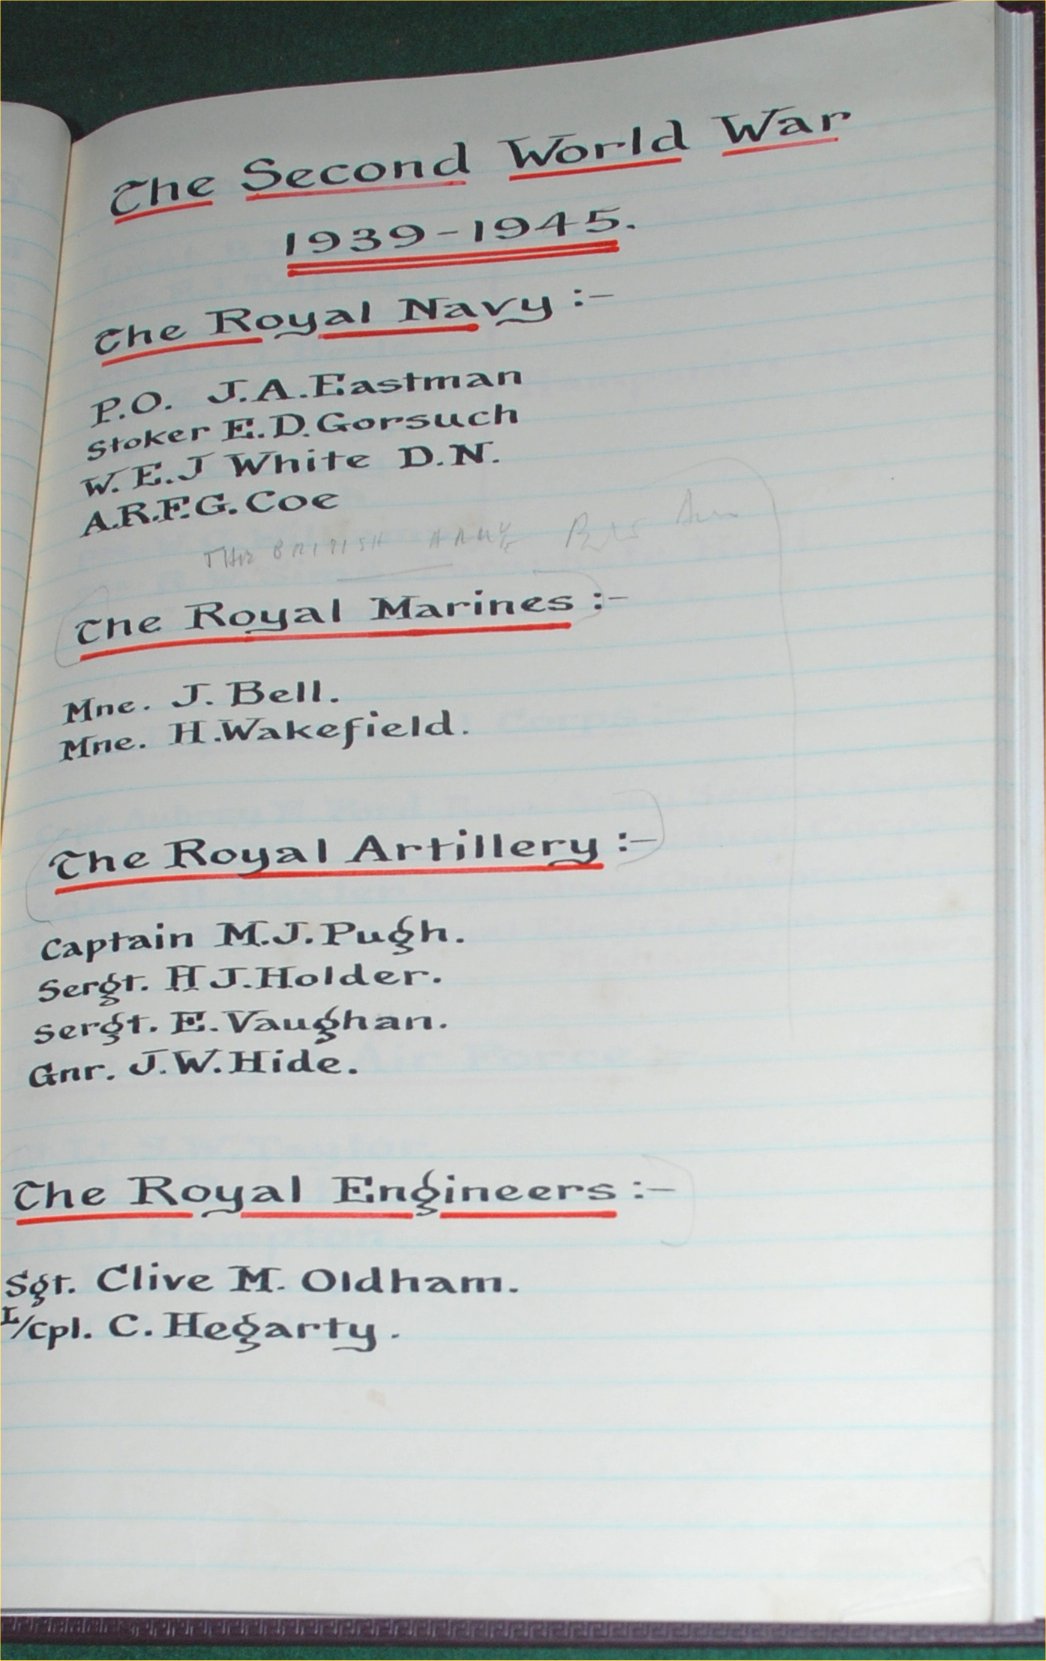 The Second World War
1939-1945.
The Royal Navy :-
P.O. J.A.Eastman
Stoker E.D.Gorsuch
W.E.J White D.N.
A.R.F.G. Coe
THE BRITISH ARMY
The Royal Marines :-
Mne. J. Bell.
Mne. H.Wakefield.
The Royal Artillery :-
Captain M.J.Pugh.
Sergt. H J.Holder.
Sergt. E.Vaughan.
Gnr. J.W.Hide.
The Royal Engineers :-
Sgt. Clive M. Oldham.
L/Cpl. C. Hegarty.